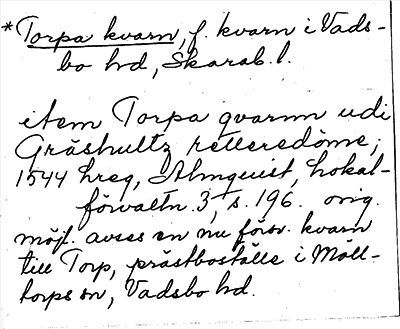 *Torpa kvarn, f. kvarn i Vads-
bo hd, Skarab. l.
item Torpa qvarnn udi
Gräshultz retteredöme;
1544 hreg, Almquist, Lokal-
förvaltn. 3, s. 196. orig.
möjl. avses en nu försv. kvarn
till Torp, prästboställe i Möll-
torps sn, Vadsbo hd.